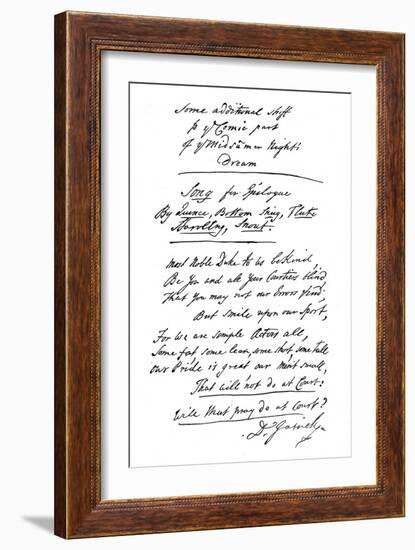 Some additional stuff
to yᵉ Comic part
of yᵉ Midsumer Night's
Dream
Song for Epilogue
By Quince, Bottom Snug, Flute
Starvling, Snout
Most Noble Duke to us be kind,
Be you and all your Courtiers blind
That you may not our Errors find,
But smile upon our Sport,
For we are simple Actors all,
Some fat some lean, some short some tall
our Pride is great our Merit small,
That will not do at Court?
will that pray do at Court?
D. Garrick